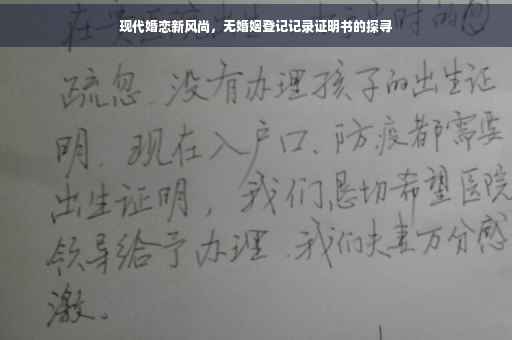 现代婚恋新风尚，无婚姻登记记录证明书的探寻
疏忽.没有办理孩子的出生证
明.现在入户口、防疫都需要
出生证明，我们恳切希望医院
领导给予办理.我们夫妻万分感
激。